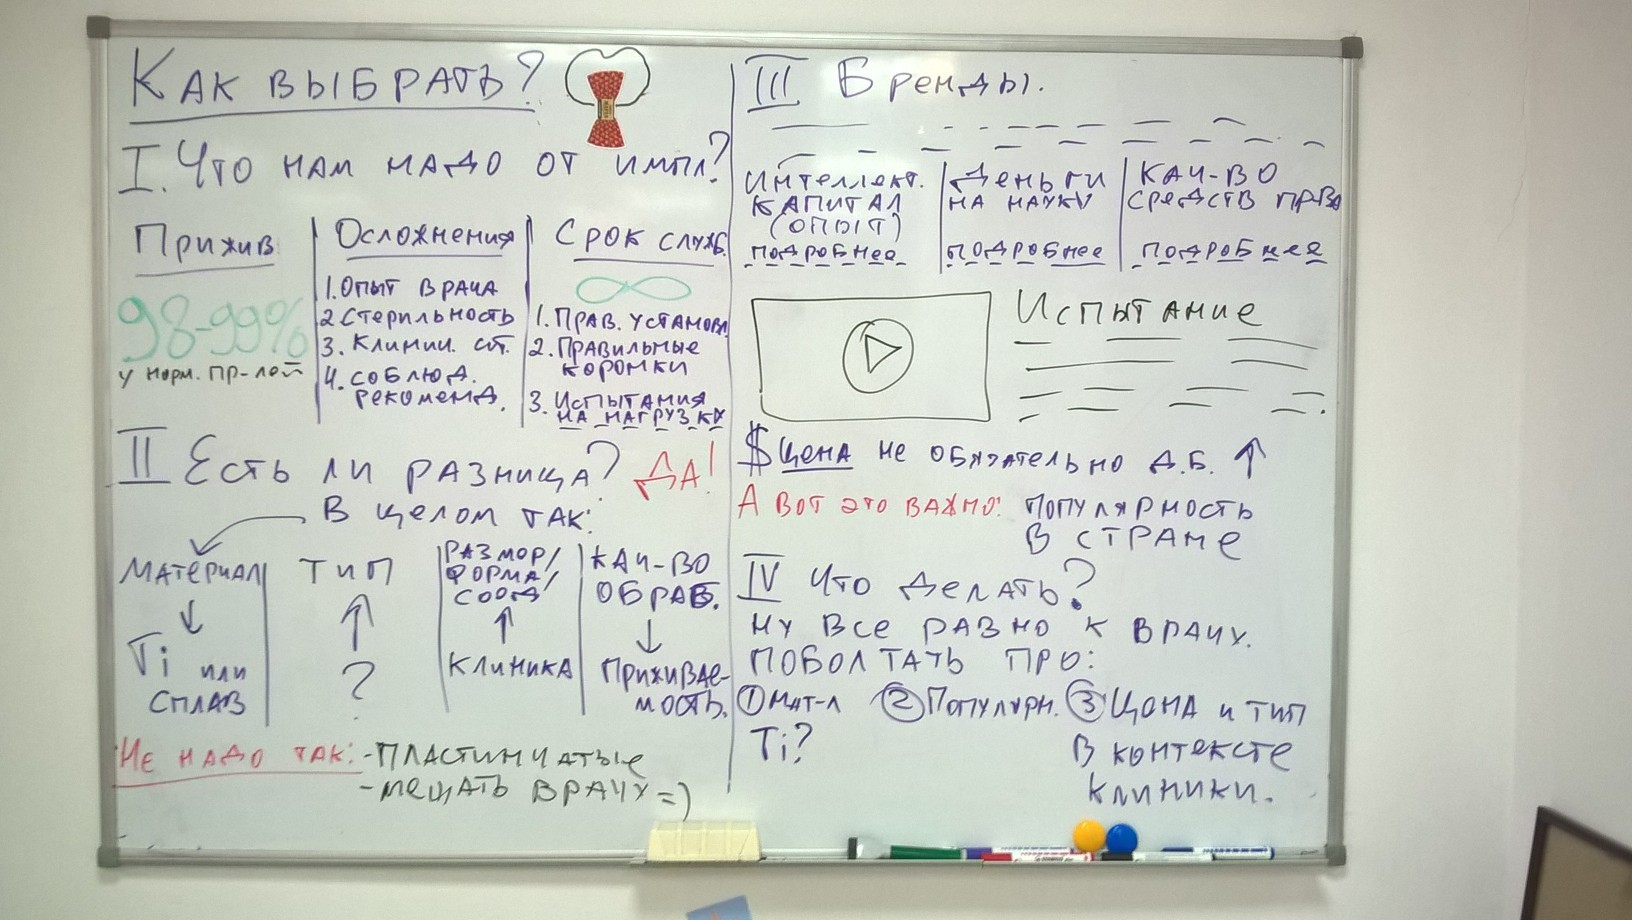 Как выбрать?
I. Что нам надо от импл?
Прижив
98-99%
у норм. пр-лей
Осложнения
1. Опыт врача
2 Стерильность
3. Клинич. сит.
4. соблюд.
рекоменд.
Срок служб.
∞
1. Прав. установ
2. Правильные
коронки
3. Испытания
на нагрузку
II Есть ли разница? Да!
В целом так:
Материал
↓
Ti или
сплав
Тип
↑
?
Размер/
форма/
соед
↑
клиника
Кач-во
обраб.
↓
Приживае-
мость.
Не надо так: - пластинчатые
- мешать врачу =)
III Бренды.
Интеллект.
капитал
(опыт)
подробнее
Деньги
на науку
подробнее
Кач-во
средств пр-ва
подробнее
Испытание
$ Цена не обязательно д.б. ↑
А вот это важно: популярность
в стране
IV Что делать?
Ну все равно к врачу.
поболтать про:
① Мат-л ② Популярн. ③ Цена и тип
Ti?
в контексте
клиники.